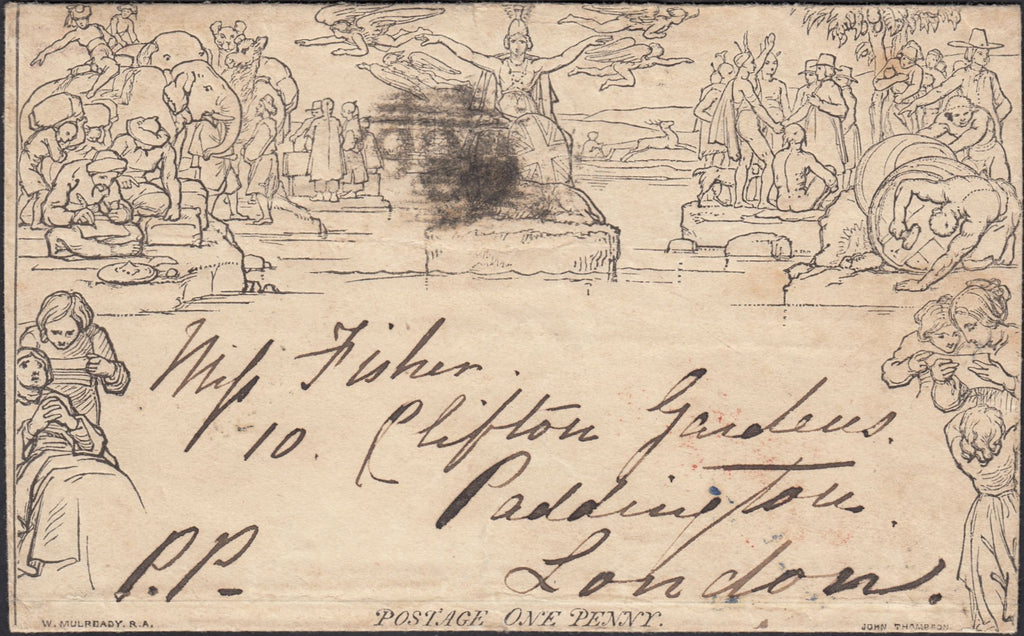 Miss Fisher.
10. Clifton Gardens.
Paddington.
London.
P.P-
POSTAGE ONE PENNY.
W. MULREADY. R.A.
JOHN THOMPSON